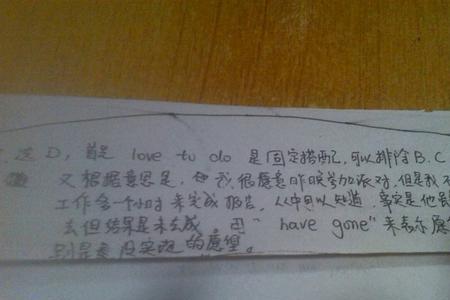 选D，首先 love to do 是固定搭配，可以排除B.C
又根据意思是，我很愿意昨晚参加派对，但是我不
工作 一个小时来完成报告，从中可以知道，事实是他
去但结果是未去成，用" have gone"来表示愿
没实现的愿望。